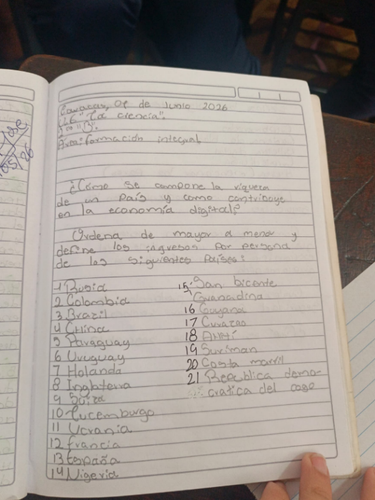 Caracas, 01 de Junio 2026
"La Ciencia".
formación integral
¿Cómo se compone la riqueza
de un País y como contribuye
en la economía digital?
Ordena de mayor a menor y
define los ingresos por persona
de los siguientes Países:
1 Rusia
2 Colombia
3 Brazil
4 China
5 Paraguay
6 Uruguay
7 Holanda
8 Inglaterra
9 Suiza
10 Lucemburgo
11 Ucrania
12 Francia
13 España
14 Nigeria
15 San bicente
y Granadina
16 Guyana
17 Curazao
18 Haití
19 Suriman
20 Costa marfil
21 Republica demo-
cratica del cogo